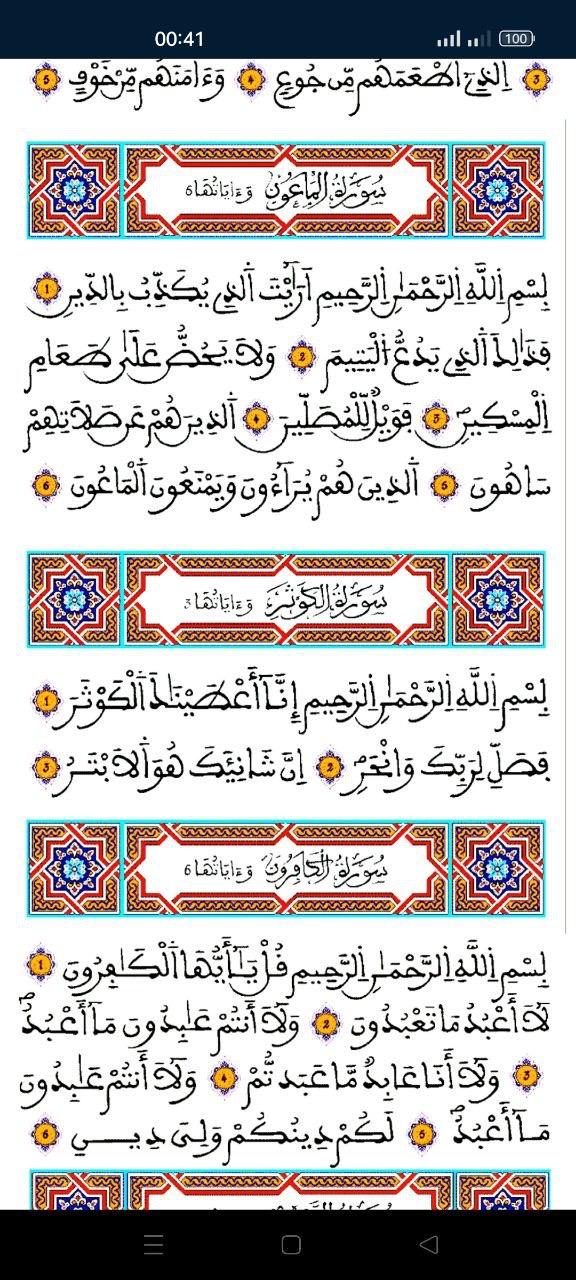 00:41
100
3 اَ۬لذِےٓ أَطْعَمَهُم مِّن جُوعٖ 4 وَءَامَنَهُم مِّنْ خَوْفٖ 5
سُورَةُ الْمَاعُونِ وَءَايَاتُهَا 6
بِسْمِ اِ۬للَّهِ اِ۬لرَّحْمَٰنِ اِ۬لرَّحِيمِ أَرَٰٓيْتَ اَ۬لذِے يُكَذِّبُ بِالدِّينِ 1
فَذَٰلِكَ اَ۬لذِے يَدُعُّ اُ۬لْيَتِيمَ 2 وَلَا يَحُضُّ عَلَىٰ طَعَامِ
اِ۬لْمِسْكِينِ 3 فَوَيْلٞ لِّلْمُصَلِّينَ 4 اَ۬لذِينَ هُمْ عَن صَلَاتِهِمْ
سَاهُونَ 5 اَ۬لذِينَ هُمْ يُرَآءُونَ وَيَمْنَعُونَ اَ۬لْمَاعُونَ 6
سُورَةُ الْكَوْثَرِ وَءَايَاتُهَا 3
بِسْمِ اِ۬للَّهِ اِ۬لرَّحْمَٰنِ اِ۬لرَّحِيمِ إِنَّآ أَعْطَيْنَٰكَ اَ۬لْكَوْثَرَ 1
فَصَلِّ لِرَبِّكَ وَانْحَرِ 2 اِنَّ شَانِئَكَ هُوَ اَ۬لَابْتَرُ 3
سُورَةُ الْكَافِرُونَ وَءَايَاتُهَا 6
بِسْمِ اِ۬للَّهِ اِ۬لرَّحْمَٰنِ اِ۬لرَّحِيمِ قُلْ يَٰٓأَيُّهَا اَ۬لْكَٰفِرُونَ 1
لَآ أَعْبُدُ مَا تَعْبُدُونَ 2 وَلَآ أَنتُمْ عَٰبِدُونَ مَآ أَعْبُدُ
3 وَلَآ أَنَا عَابِدٞ مَّا عَبَدتُّمْ 4 وَلَآ أَنتُمْ عَٰبِدُونَ
مَآ أَعْبُدُ 5 لَكُمْ دِينُكُمْ وَلِيَ دِينِ 6